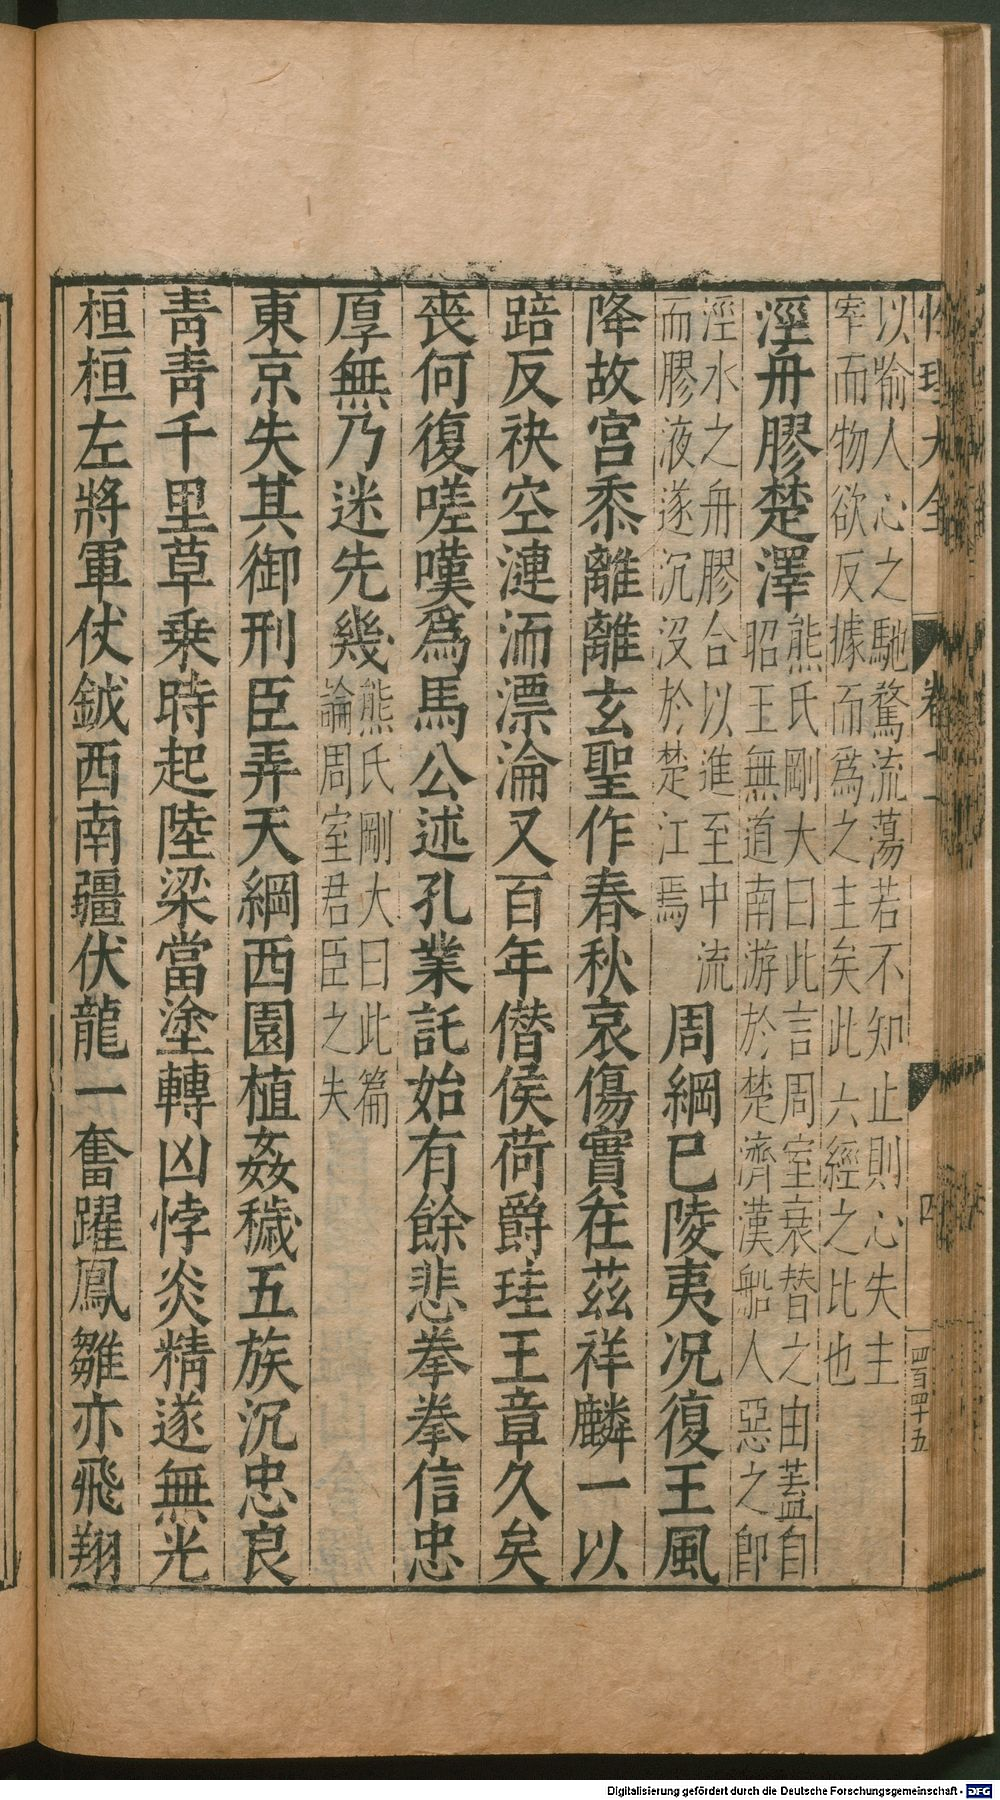 性理大全 卷七十一 四 一四百四十五
以喻人心之馳騖流蕩若不知止則心失主
宰而物欲反據而爲之主矣此六經之比也
涇舟膠楚澤
熊氏剛大曰此言周室衰替之由蓋自
昭王無道南游於楚濟漢船人惡之卽
涇水之舟膠合以進至中流
而膠液遂沉沒於楚江焉
周綱巳陵夷况復王風
降故宮黍離離玄聖作春秋哀傷實在茲祥麟一以
踣反袂空漣洏漂淪又百年僭侯荷爵珪王章久矣
喪何復嗟嘆爲馬公述孔業託始有餘悲拳拳信忠
厚無乃迷先幾
熊氏剛大曰此篇
論周室君臣之失
東京失其御刑臣弄天綱西園植姦穢五族沉忠良
青青千里草乗時起陸梁當塗轉凶悖炎精遂無光
桓桓左將軍仗鉞西南疆伏龍一奮躍鳳雛亦飛翔
Digitalisierung gefördert durch die Deutsche Forschungsgemeinschaft - DFG